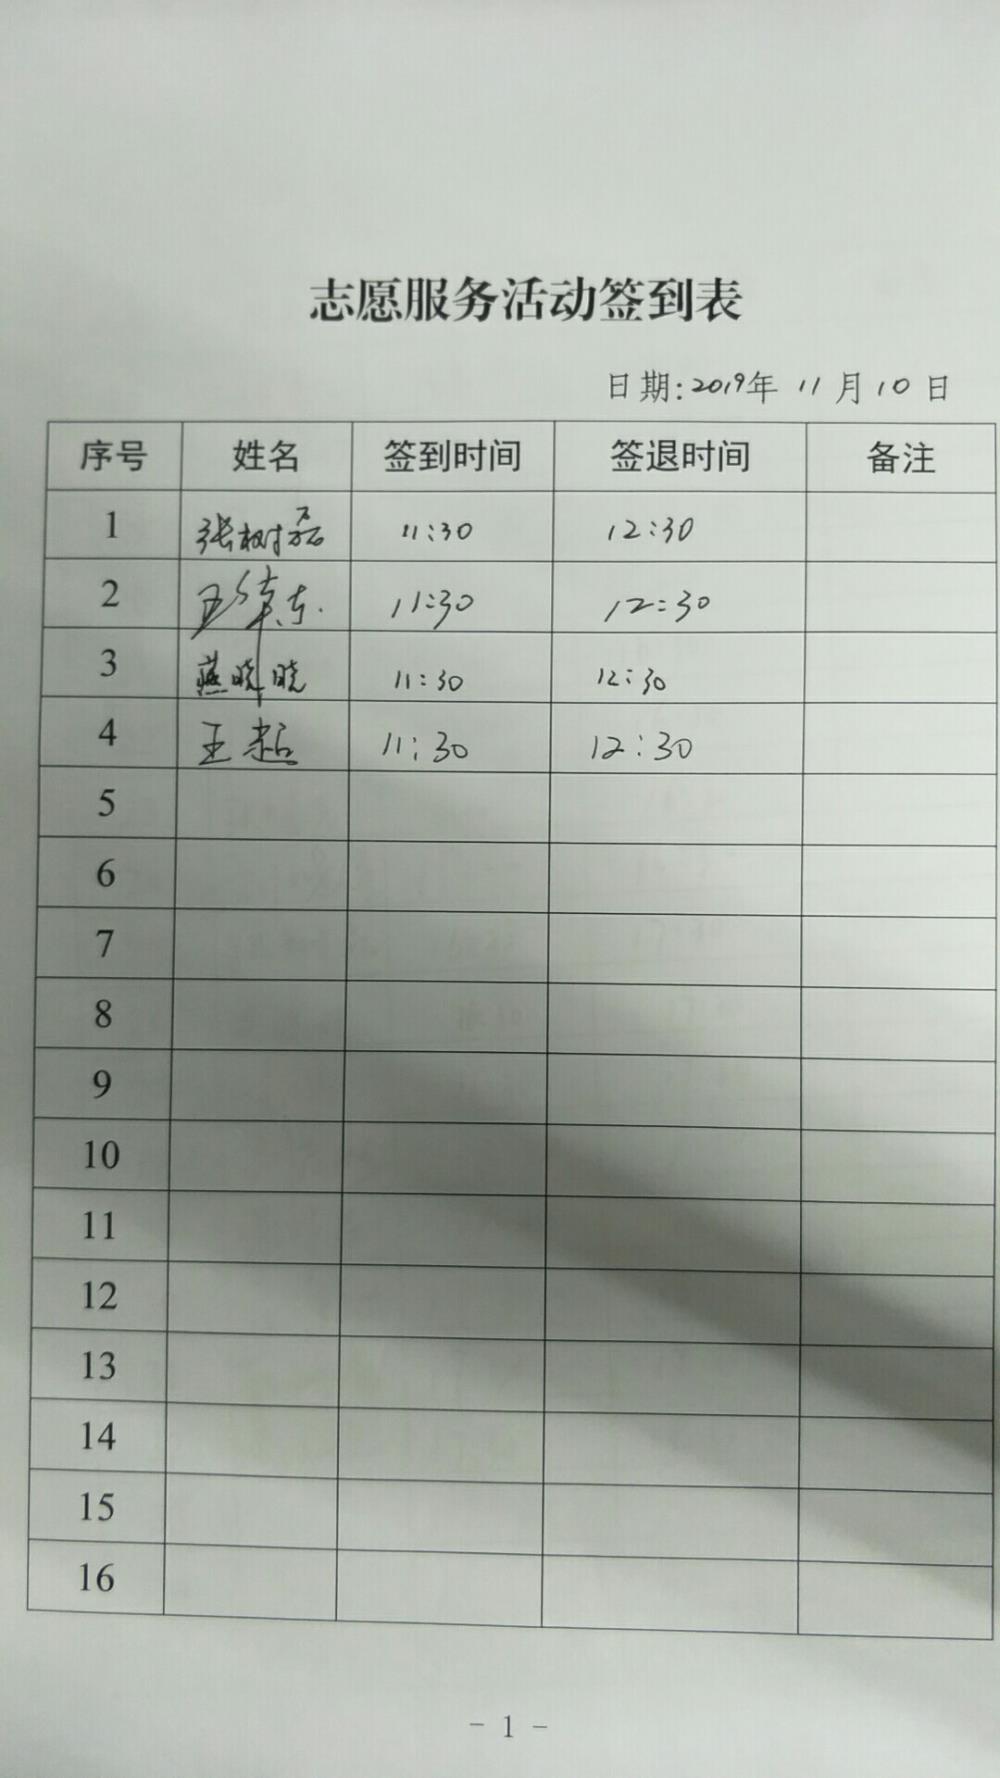 志愿服务活动签到表
日期:2019年 11月10日
序号 姓名 签到时间 签退时间 备注
1 张树磊 11:30 12:30
2 王华东 11:30 12:30
3 燕晓晓 11:30 12:30
4 王超 11:30 12:30
5
6
7
8
9
10
11
12
13
14
15
16
- 1 -